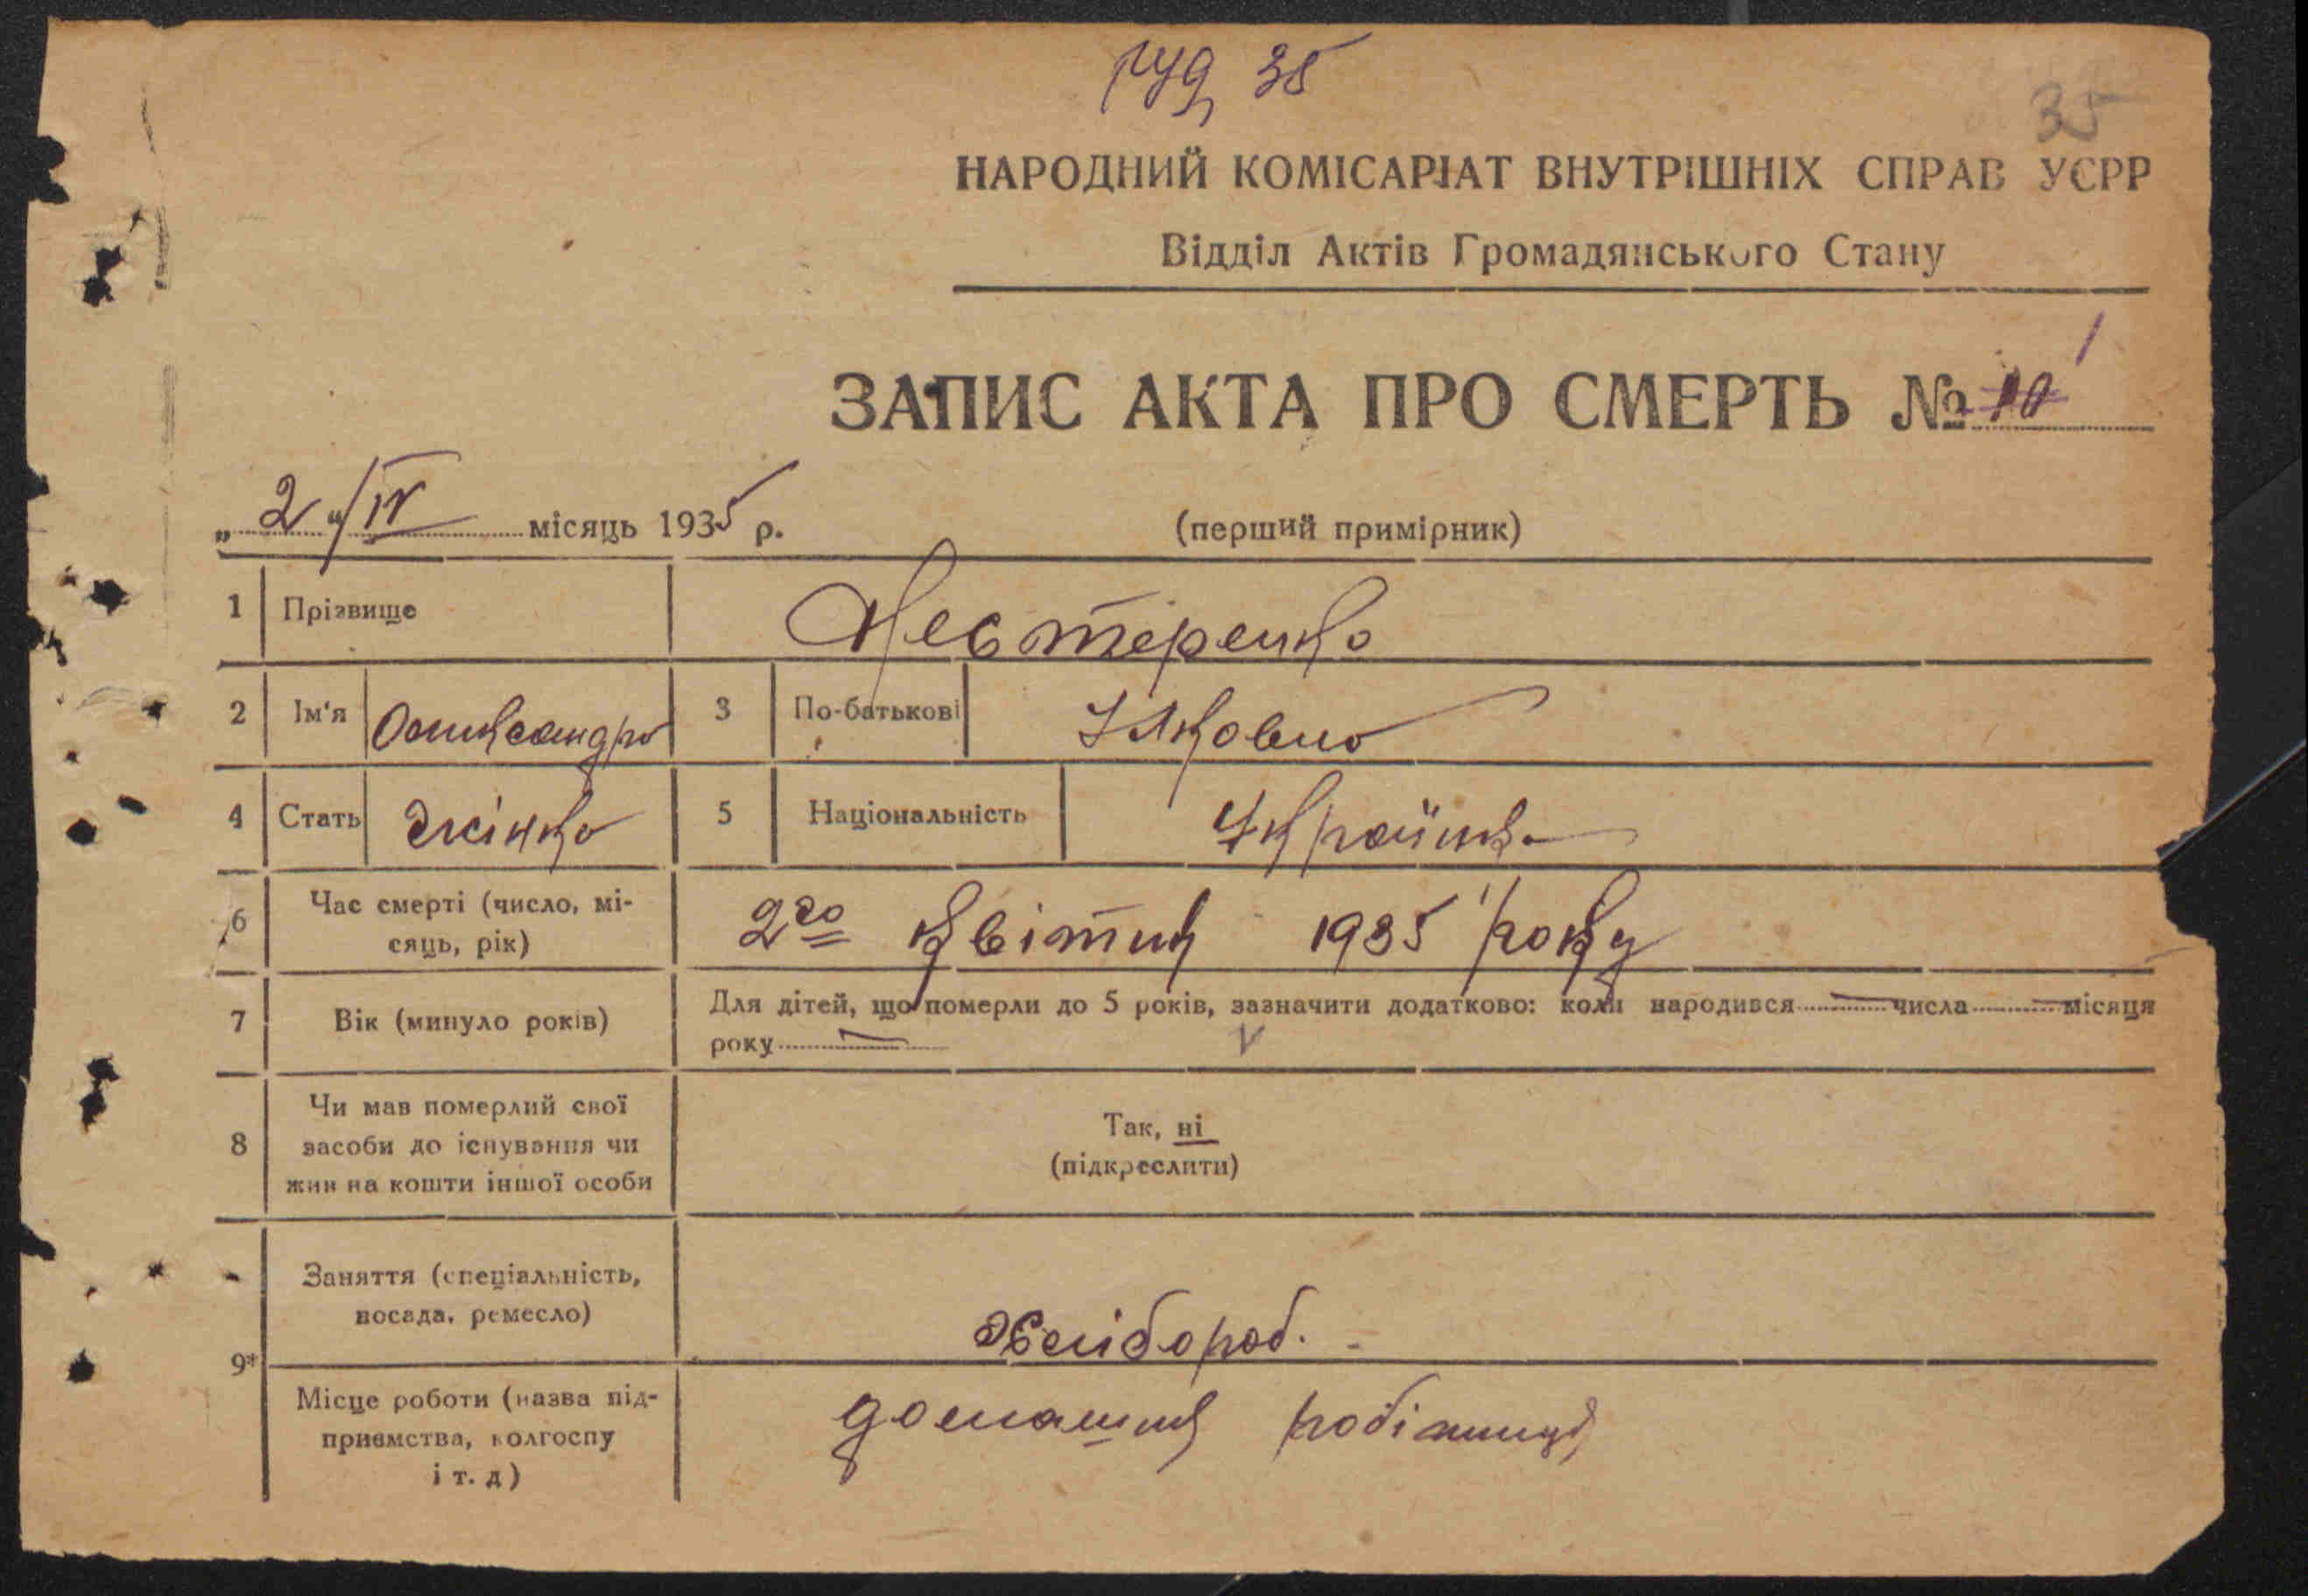 35
35
НАРОДНИЙ КОМІСАРІАТ ВНУТРІШНІХ СПРАВ УСРР
Відділ Актів Громадянського Стану
ЗАПИС АКТА ПРО СМЕРТЬ № 10 1
„ 2 “ / IV місяць 1935 р.
(перший примірник)
1 Прізвище Нестеренко
2 Ім'я Олександра 3 По-батькові Яковна
4 Стать жінка 5 Національність Українка
6 Час смерті (число, мі-
сяць, рік) 2го квітня 1935 року
7 Вік (минуло років) Для дітей, що померли до 5 років, зазначити додатково: коли народився — числа — місяця
року —
8 Чи мав померлий свої
засоби до існування чи
жив на кошти іншої особи
Так, ні
(підкреслити)
9* Заняття (спеціальність,
посада, ремесло) Хлібороб.
Місце роботи (назва під-
приємства, колгоспу
і т. д)
домашня робітниця